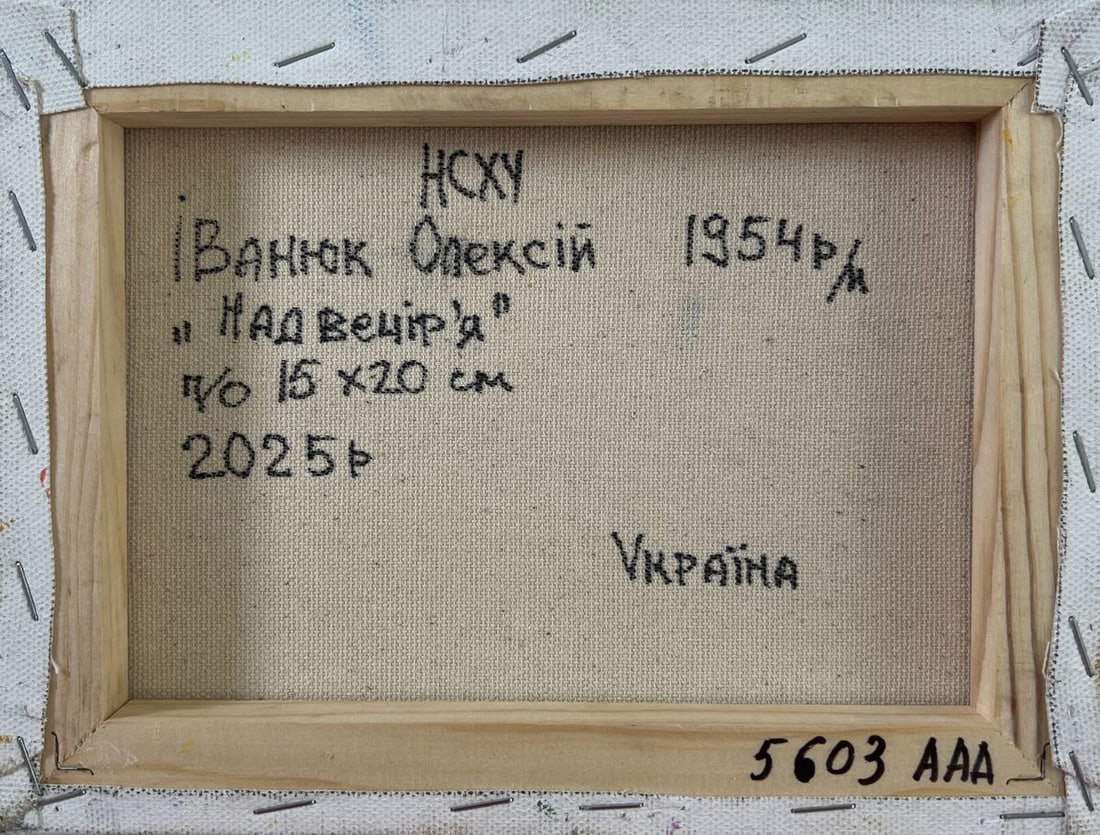 НСХУ
Іванюк Олексій 1954р/н
„Надвечір'я"
п/о 15х20 см
2025р
Україна
5603 ААА